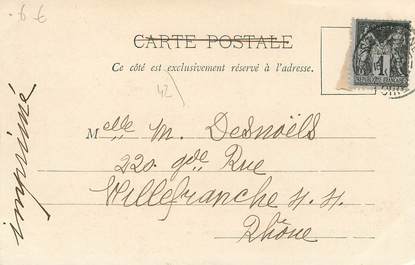 CARTE POSTALE
Ce côté est exclusivement réservé à l'adresse.
42
Melle M. Desnoëls
220 gde Rue
Villefranche s. s.
Rhône
imprimé